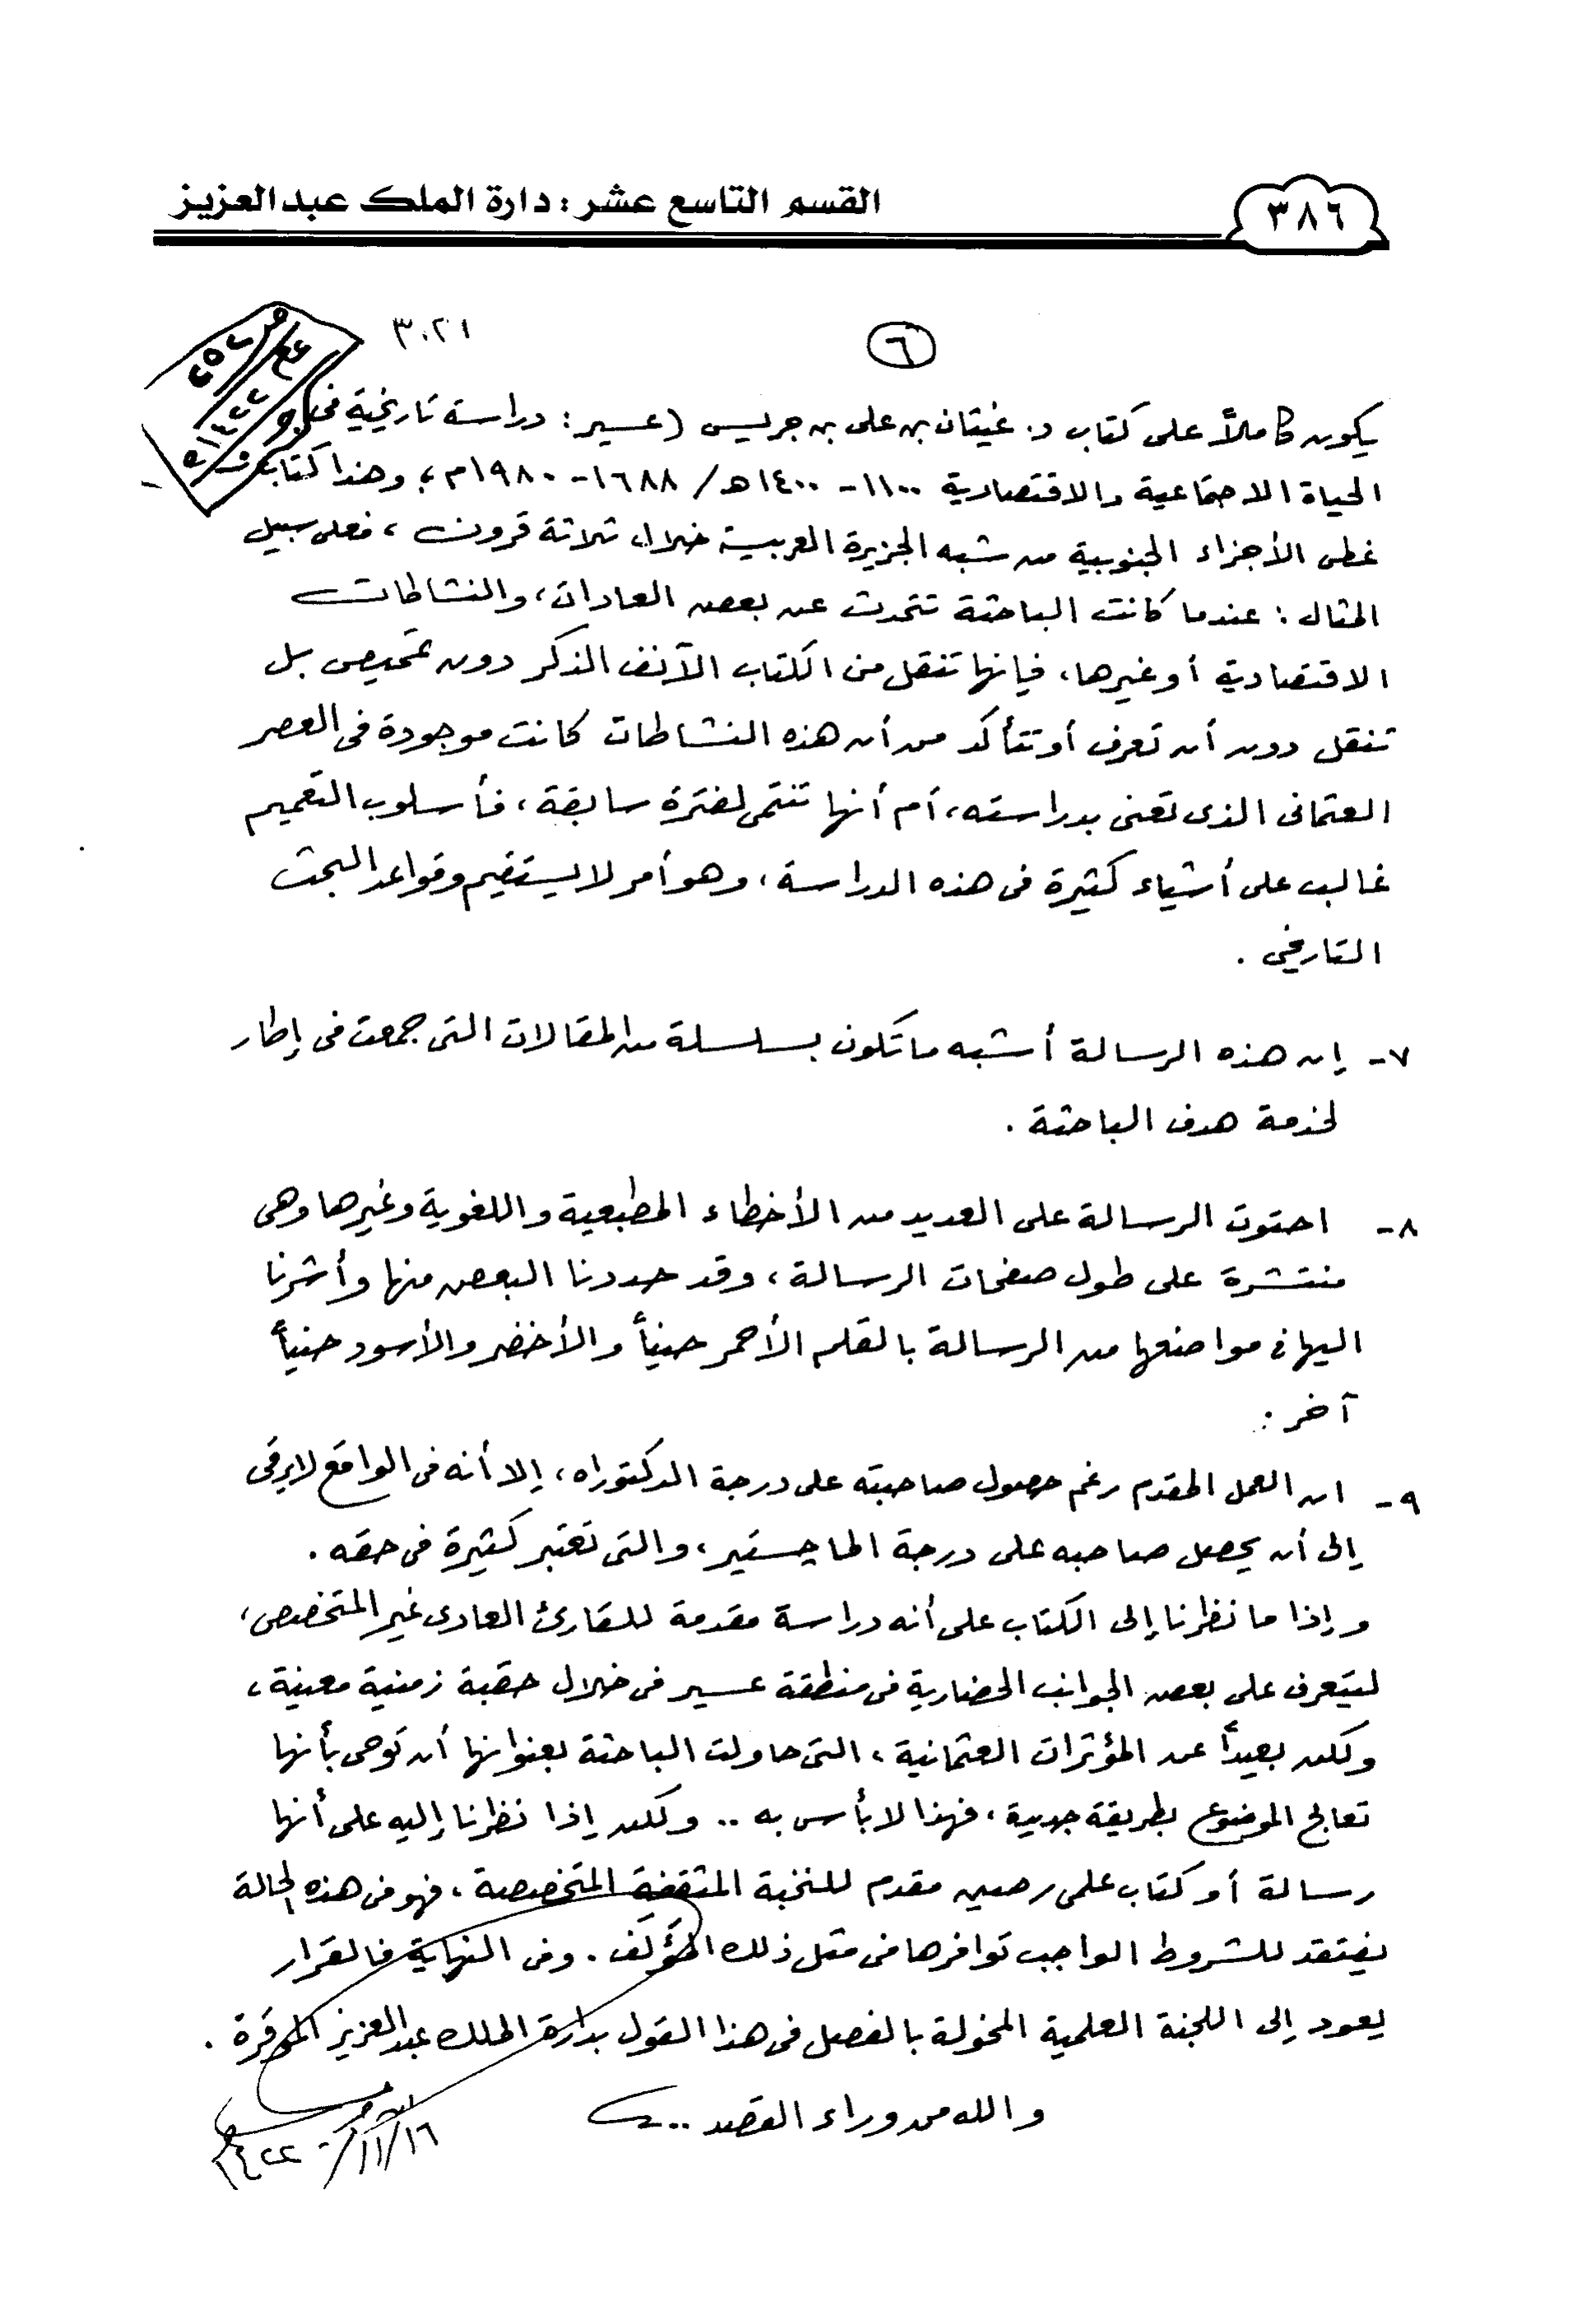 ٣٨٦
القسم التاسع عشر : دارة الملك عبدالعزيز
٣٠٢١
٦
يكون كاملاً على كتاب د. غيثان بن على بن جريس (عسير: دراسة تاريخية فى
الحياة الاجتماعية والاقتصادية ١١٠٠- ١٤٠٠هـ/ ١٦٨٨-١٩٨٠م، وهذا كتاب
غطى الأجزاء الجنوبية من شبه الجزيرة العربية خلال ثلاثة قرون، فعلى سبيل
المثال : عندما كانت الباحثة تتحدث عن بعض العادات، والنشاطات
الاقتصادية أو غيرها، فإنها تنقل من الكتاب الآنف الذكر دون تمحيص بل
تنقل دون أن تعرف أو تتأكد من أن هذه النشاطات كانت موجودة فى العصر
العثمانى الذى تعنى بدراسته، أم أنها تنتمى لفترة سابقة، فأسلوب التعميم
غالب على أشياء كثيرة فى هذه الدراسة، وهو أمر لا يستقيم وقواعد البحث
التاريخى .
٧- إن هذه الرسالة أشبه ما تكون بسلسلة من المقالات التى جمعت فى إطار
لخدمة هدف الباحثة .
٨- احتوت الرسالة على العديد من الأخطاء المطبعية واللغوية وغيرها وهى
منتشرة على طول صفحات الرسالة، وقد حددنا البعض منها وأشرنا
اليها فى مواضعها من الرسالة بالقلم الأحمر حيناً والأخضر والأسود حيناً
آخر .
٩- ان العمل المقدم رغم حصول صاحبته على درجة الدكتوراه، إلا أنه فى الواقع لا يرقى
إلى أن يحصل صاحبه على درجة الماجستير، والتى تعتبر كثيرة فى حقه .
وإذا ما نظرنا إلى الكتاب على أنه دراسة مقدمة للقارئ العادى غير المتخصص،
ليتعرف على بعض الجوانب الحضارية فى منطقة عسير فى خلال حقبة زمنية معينة،
ولكن بعيداً عن المؤثرات العثمانية، التى حاولت الباحثة بعنوانها أن توحى بأنها
تعالج الموضوع بطريقة جدية، فهذا لا بأس به .. ولكن إذا نظرنا إليه على أنها
رسالة أو كتاب علمى رصين مقدم للنخبة المثقفة المتخصصة، فهو فى هذه الحالة
يفتقد للشروط الواجب توافرها فى مثل ذلك المؤلَّف . وفى النهاية فالقرار
يعود إلى اللجنة العلمية المخولة بالفصل فى هذا القول بدارة الملك عبد العزيز الموقرة .
والله من وراء القصد ..
١٤٢٢/١١/١٦